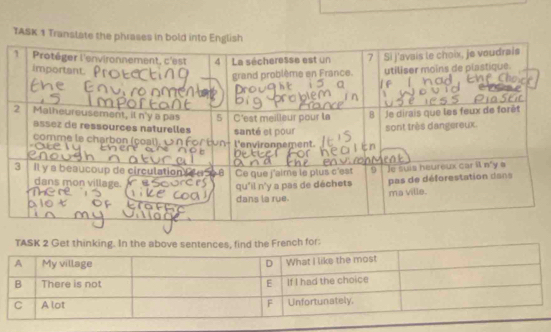 TASK 1 Translate the phrases in bold into English
1 Protéger l'environnement, c'est
important. Protecting
the Environment
is important
4 La sécheresse est un
grand problème en France.
Drought is a
big problem in
France
7 Si j'avais le choix, je voudrais
utiliser moins de plastique.
If I had the choice
I would
use less plastic
2 Malheureusement, il n'y a pas
assez de ressources naturelles
comme le charbon (coal). unfortun-
ately there are not
enough natural
5 C'est meilleur pour la
santé et pour
l'environnement. It is
better for health
and the environment
8 Je dirais que les feux de forêt
sont très dangereux.
3 Il y a beaucoup de circulation
dans mon village. resources
like coal
There is
alot of traffic
in my village.
6 Ce que j'aime le plus c'est
qu'il n'y a pas de déchets
dans la rue.
9 Je suis heureux car il n'y a
pas de déforestation dans
ma ville.
TASK 2 Get thinking. In the above sentences, find the French for:
A My village
D What I like the most
B There is not
E If I had the choice
C A lot
F Unfortunately.